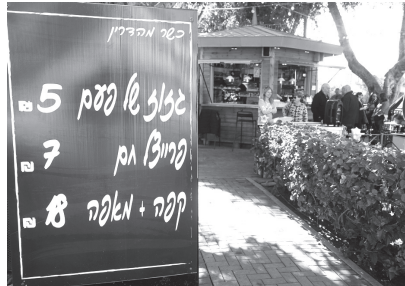 כשר מהדרין
גזוז של פעם 5 ₪
פרייצל חם 7 ₪
קפה + מאפה 18 ₪